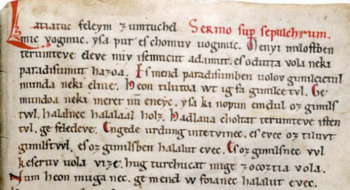 Latiatuc feleym zumtuchel Sermo sup sepulchrum.
mic vogmuc. ysa pur es chomuv uogmuc. Menyi milostben
terumteve eleve miv isemucut adamut. es odutta vola neki
paradisumut hazoa. Es mend paradisumben uolov gimilcictul
munda neki elnie. Heon tilutoa wt ig fa gimilce tvl. Ge
mundoa neki meret nu eneyc. ysa ki nopun emdul oz gimils
twl. halalnec halalaal holz. Hadlaua choltat terumteve isten
tvl. ge feledeve. Engede urdung intetvinec. es evec oz tiluvt
gimilstwl. es oz gimilsben halalut evec. Es oz gimilsnec vvl
keseruv uola vize. hug turchucat mige zocoztia vola.
Num heon muga nec. ge mend w foianec halalut evec.